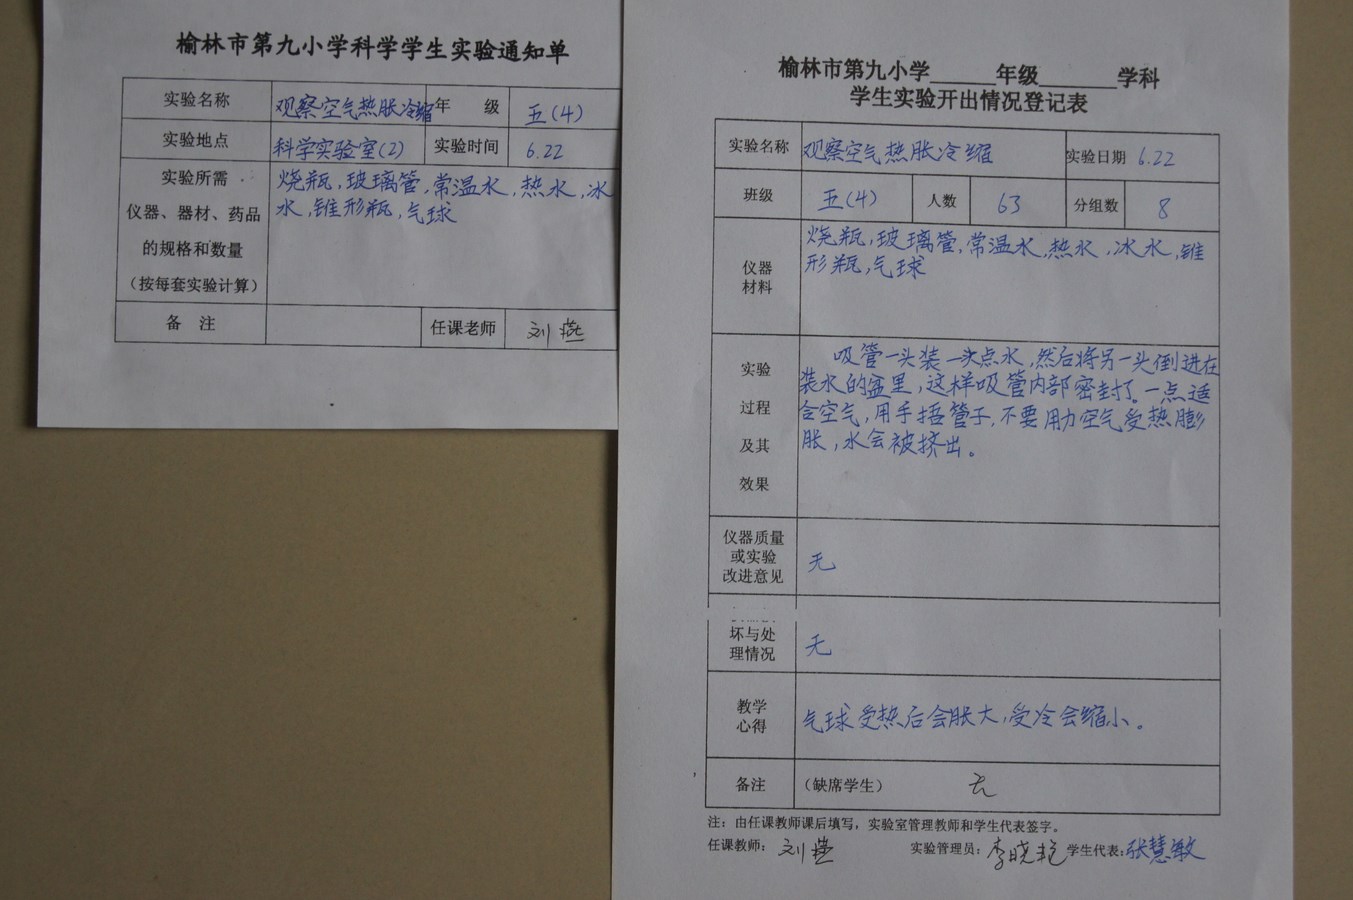 榆林市第九小学科学学生实验通知单
实验名称 观察空气热胀冷缩 年 级 五(4)
实验地点 科学实验室(2) 实验时间 6.22
实验所需
仪器、器材、药品
的规格和数量
(按每套实验计算)
烧瓶,玻璃管,常温水,热水,冰
水,锥形瓶,气球
备 注 任课老师 刘燕
榆林市第九小学______年级_______学科
学生实验开出情况登记表
实验名称 观察空气热胀冷缩 实验日期 6.22
班级 五(4) 人数 63 分组数 8
仪器
材料
烧瓶,玻璃管,常温水,热水,冰水,锥
形瓶,气球
实验
过程
及其
效果
吸管一头装一点水,然后将另一头倒进在
装水的盆里,这样吸管内部密封了。一点适
合空气,用手捂管子,不要用力空气受热膨
胀,水会被挤出。
仪器质量
或实验
改进意见
无
坏与处
理情况
无
教学
心得
气球受热后会胀大,受冷会缩小。
备注 (缺席学生) 无
注:由任课教师课后填写,实验室管理教师和学生代表签字。
任课教师: 刘燕 实验管理员: 李晓艳 学生代表: 张慧敏